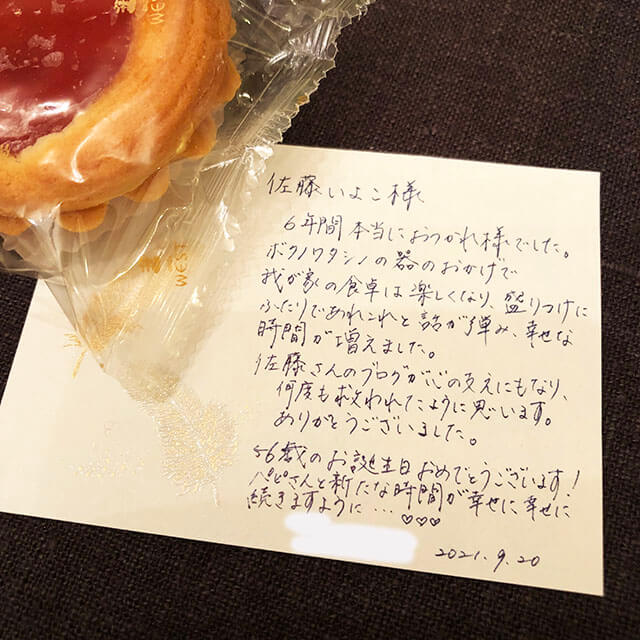 WEST
WEST
佐藤いよこ様
6年間本当におつかれ様でした。
ボクノワタシノの器のおかげで
我が家の食卓は楽しくなり、盛りつけに
ふたりであれこれと話が弾み、幸せな
時間が増えました。
佐藤さんのブログが心の支えにもなり、
何度も救われたように思います。
ありがとうございました。
56歳のお誕生日おめでとうございます!
パピさんと新たな時間が幸せに幸せに
続きますように…♡♡♡
2021.9.20